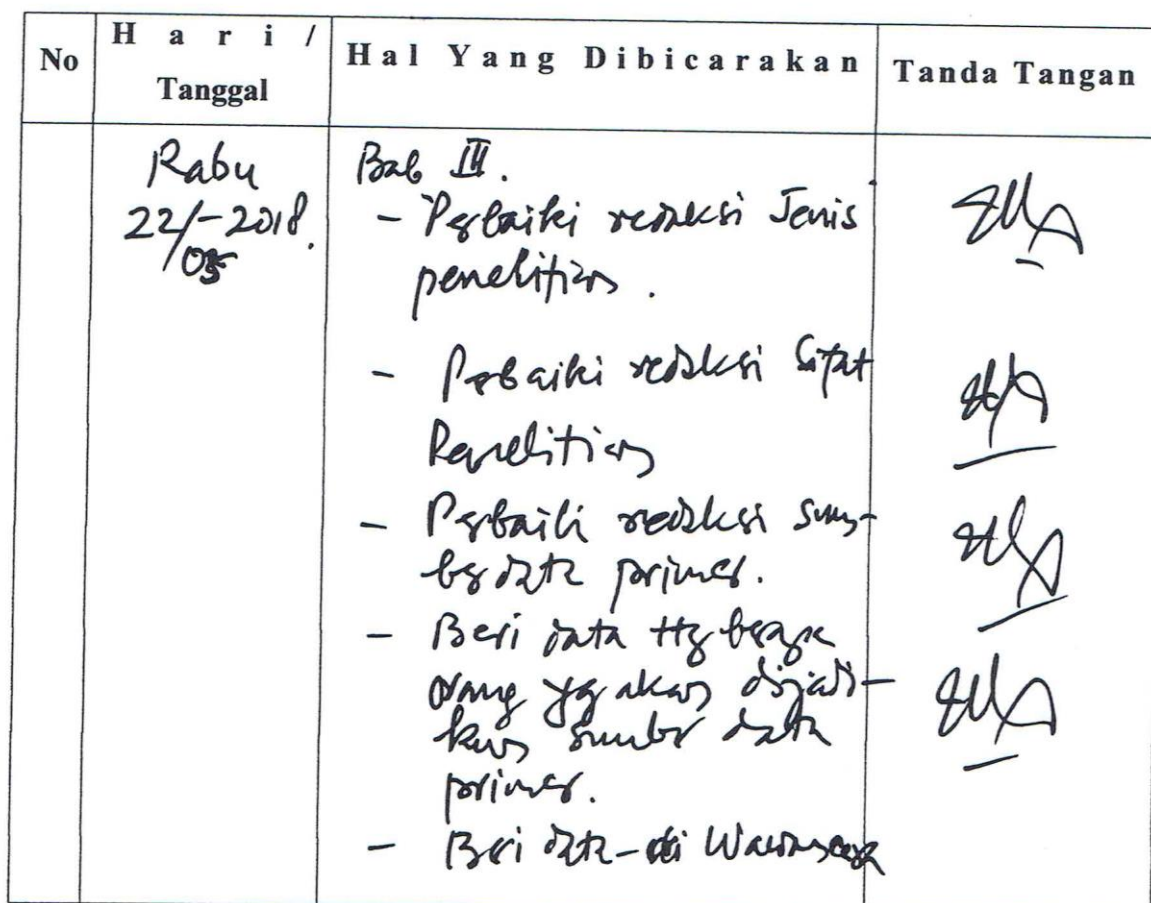 No
H a r i /
Tanggal
Hal Yang Dibicarakan
Tanda Tangan
Rabu
22/05-2018.
Bab III.
- Perbaiki redaksi Jenis
penelitian.
- Perbaiki redaksi Sifat
Penelitian
- Perbaiki redaksi sum-
ber data primer.
- Beri data ttg berapa
orang yg akan dijadi-
kan sumber data
primer.
- Beri data-di Wawancara